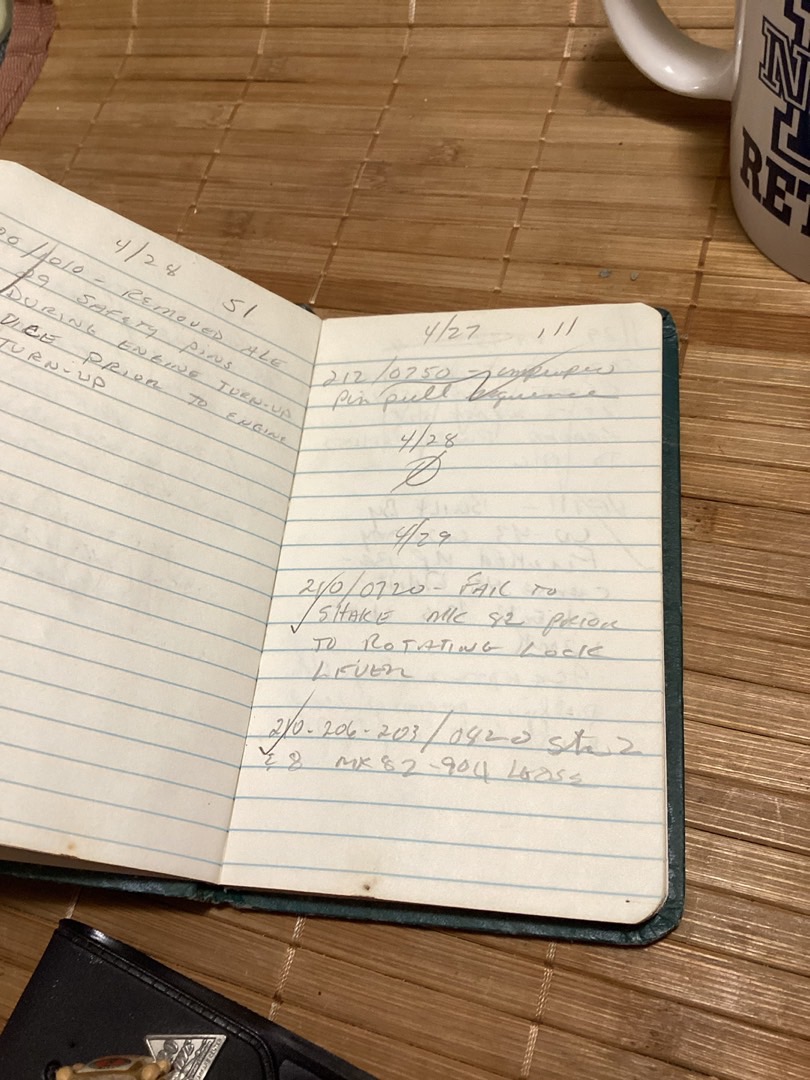 4/28 51
/1010 - REMOVED ALE
39 SAFETY PINS
DURING ENGINE TURN-UP
VICE PRIOR TO ENGINE
TURN-UP
4/27 111
212/0750 - improper
Pin pull sequence
4/28
Ø
4/29
210/0720 - FAIL TO
SHAKE MK 82 PRIOR
TO ROTATING LOCK
LEVER
210-206-203/0420 Sta 2
& 8 MK82-904 LOOSE
N
RET